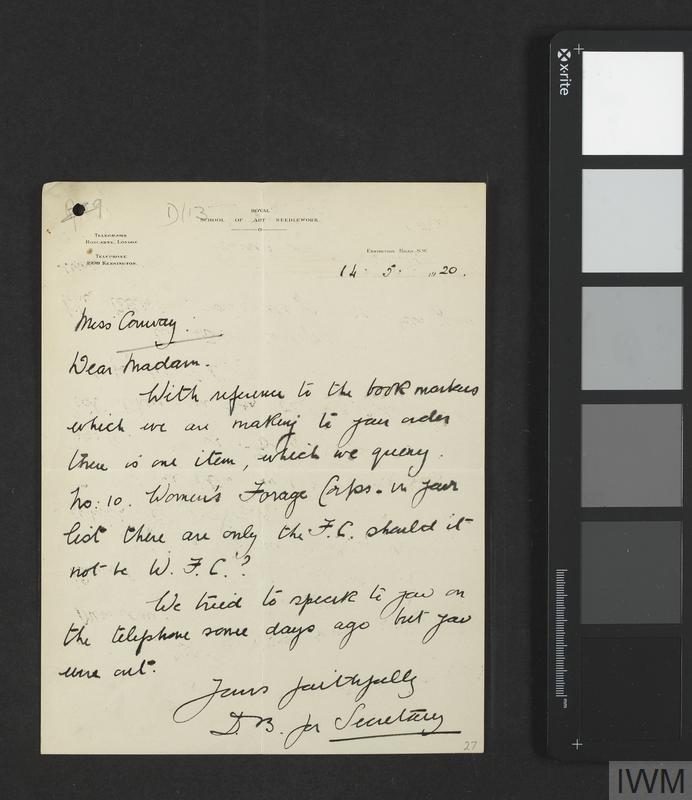 D/13
ROYAL
SCHOOL OF ART NEEDLEWORK.
TELEGRAMS
LONDON
TELEPHONE
KENSINGTON.
EXHIBITION ROAD, S.W.
14. 5. 1920.
Miss Conway.
Dear Madam.
With reference to the book markers
which we are making to your order
there is one item, which we query.
No: 10. Women's Forage Corps - in your
list there are only the F.C. should it
not be W.F.C.?
We tried to speak to you on
the telephone some days ago but you
were out.
Yours faithfully
D.B. for Secretary
27
x-rite
mm
IWM